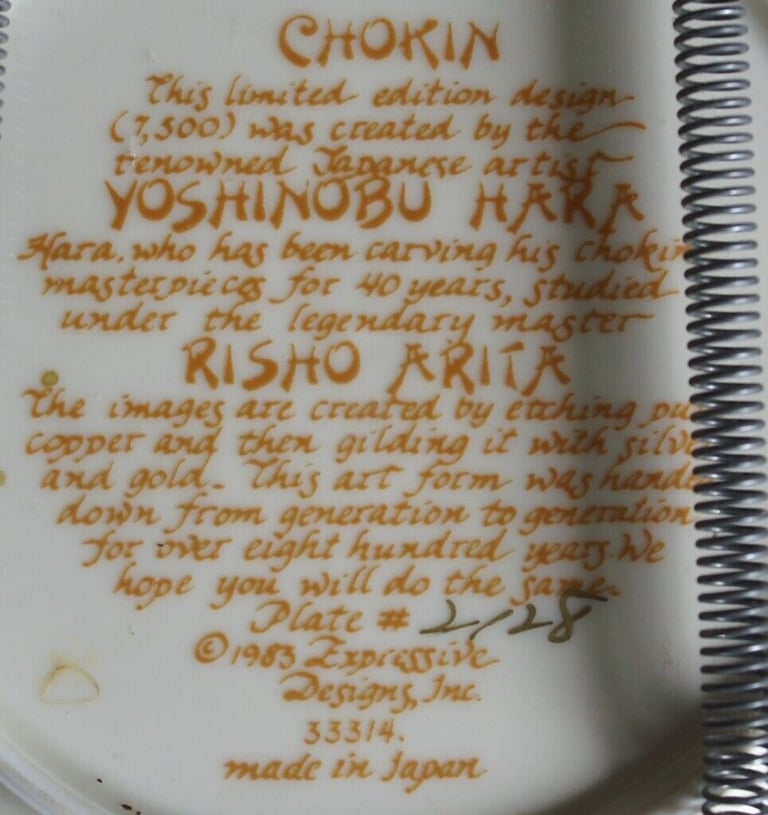 CHOKIN
This limited edition design
(7,500) was created by the
renowned Japanese artist
YOSHINOBU HARA
Hara, who has been carving his chokin
masterpieces for 40 years, studied
under the legendary master
RISHO ARITA
The images are created by etching pu
copper and then gilding it with silve
and gold. This art form was hande
down from generation to generation
for over eight hundred years. We
hope you will do the same.
Plate # 2,128
©1983 Expressive
Designs, Inc.
33314.
made in Japan